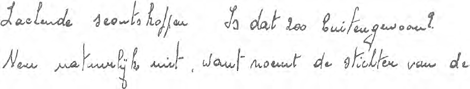 Lachende scoutskoppen Is dat zoo buitengewoon?
Neen natuurlijk niet, want noemt de stichter van de